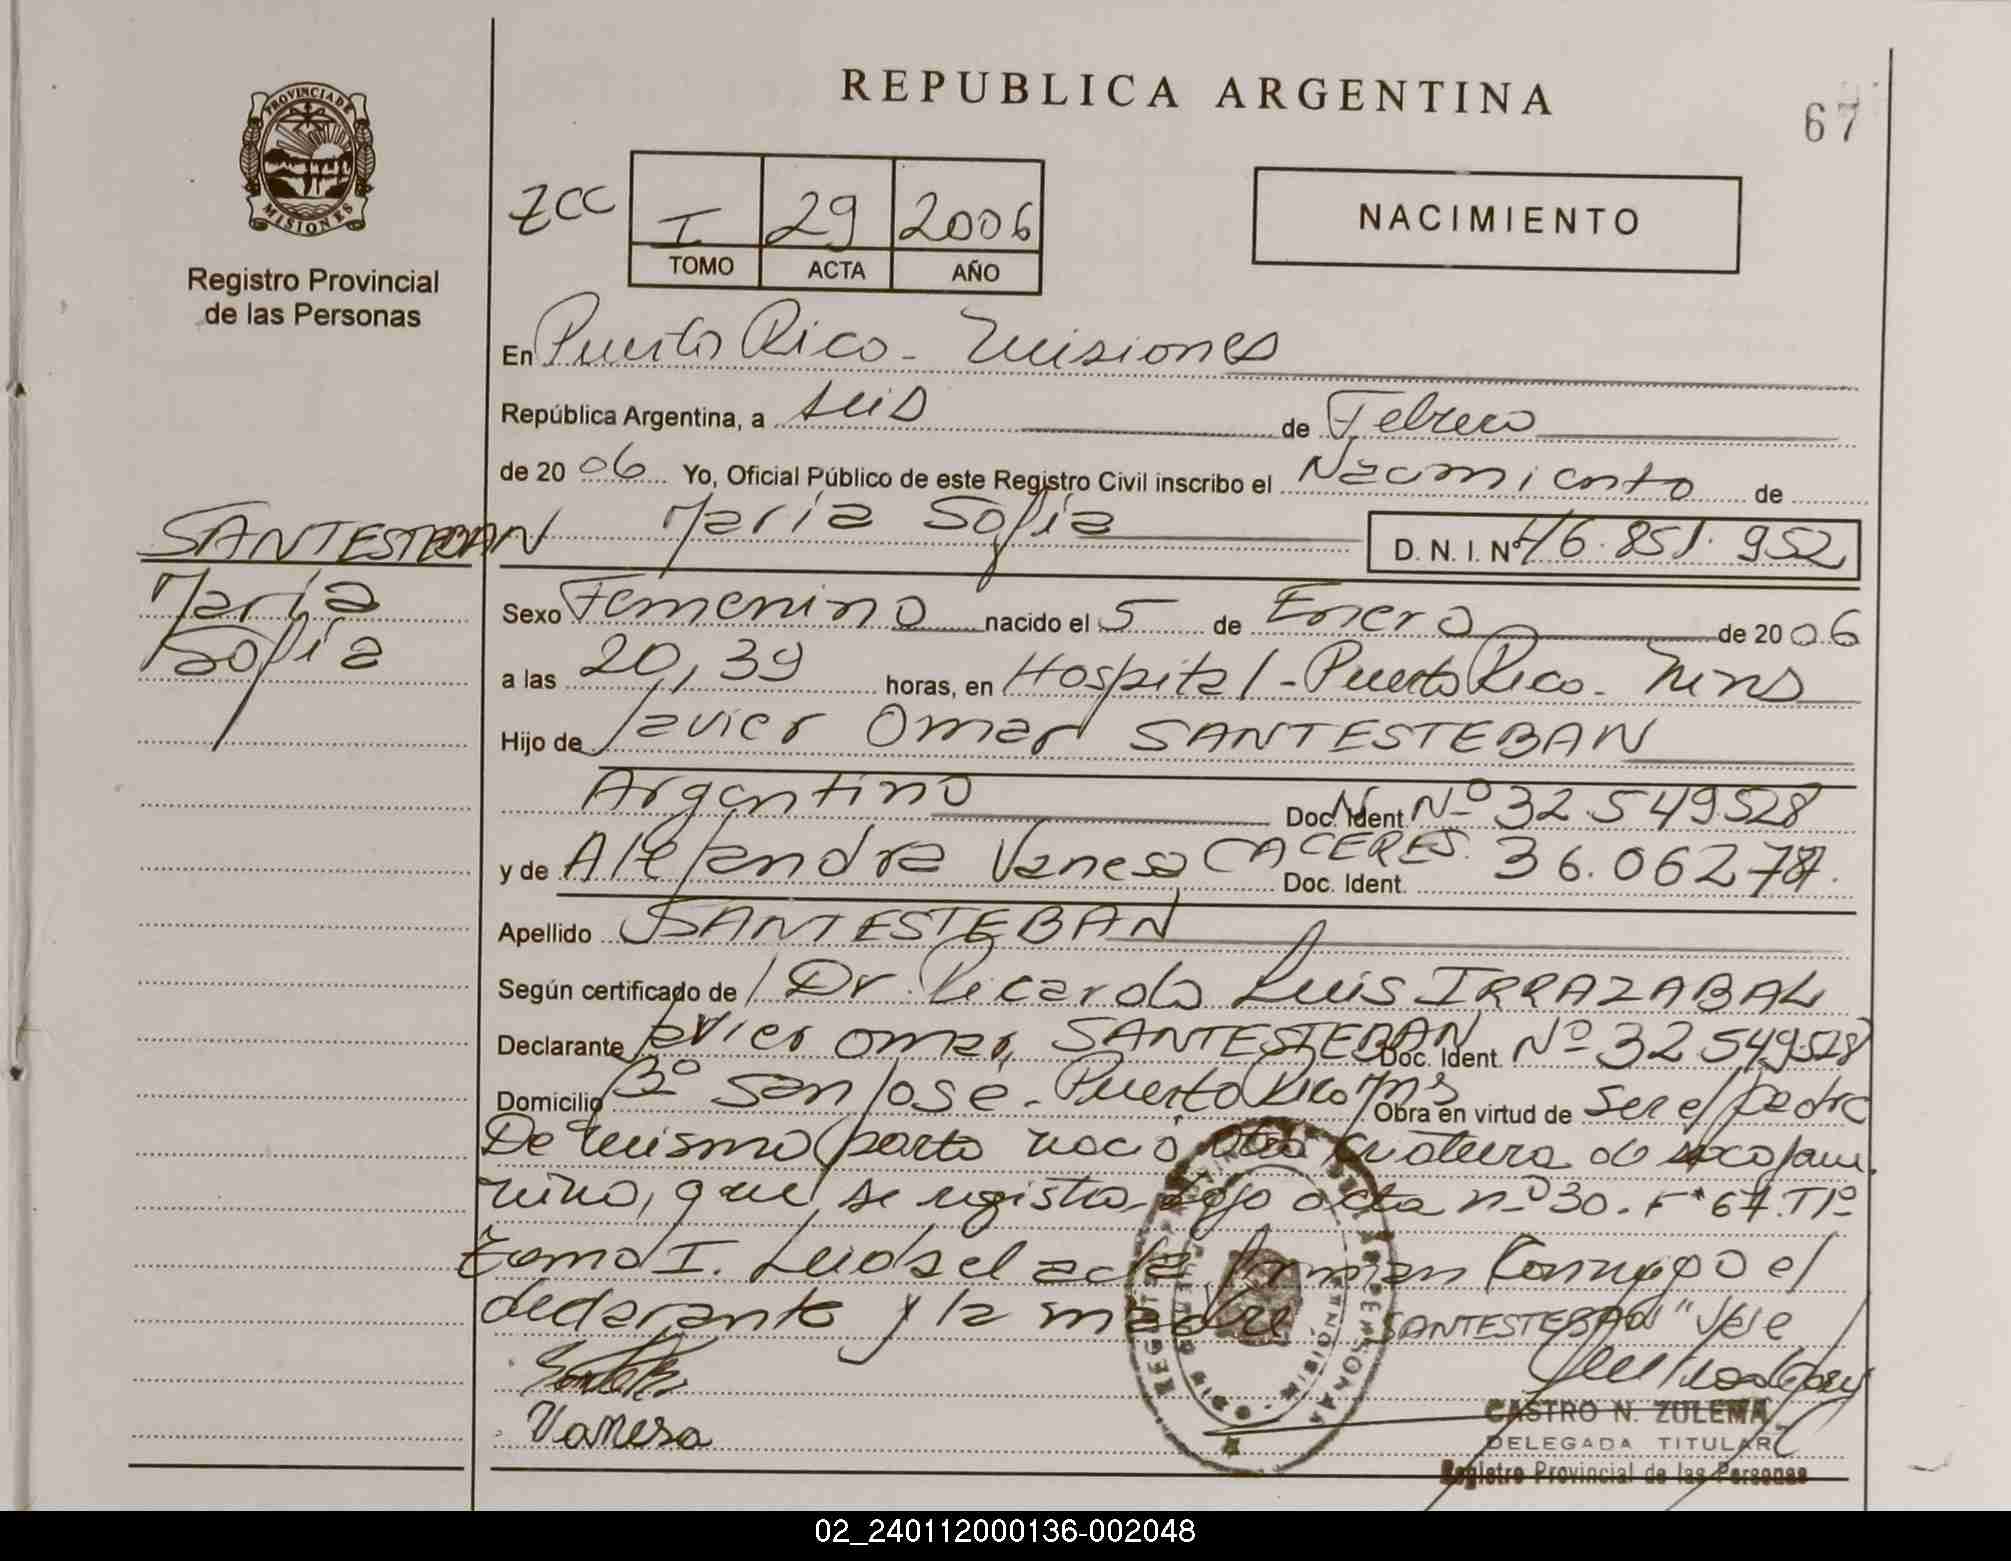 REPUBLICA ARGENTINA
67
PROVINCIA DE
MISIONES
Registro Provincial
de las Personas
ZCC I 29 2006
TOMO ACTA AÑO
NACIMIENTO
En Puerto Rico - Misiones
República Argentina, a seis de Febrero
de 20 06 Yo, Oficial Público de este Registro Civil inscribo el Nacimiento de
María Sofía D. N. I. Nº 46.851.952
SANTESTEBAN
María
Sofía
Sexo Femenino nacido el 5 de Enero de 20 06
a las 20,39 horas, en Hospital - Puerto Rico - Mns
Hijo de Javier Omar SANTESTEBAN
Argentino Doc. Ident. Nº 32.549.528
y de Alejandra Vanesa CACERES Doc. Ident. 36.062.787.
Apellido SANTESTEBAN
Según certificado de Dr. Ricardo Luis IRRAZABAL
Declarante Javier Omar SANTESTEBAN Doc. Ident. Nº 32.549.528
Domicilio Bº San José - Puerto Rico Mns Obra en virtud de ser el padre
De mismo parto nació otra criatura de sexo feme
nino, que se registra bajo acta nº 30. Fº 67. T1º
Tomo I. Leída el acta firman conmigo el
declarante y la madre SANTESTEBAN" Vale
Vanesa
CASTRO N. ZULEMA
DELEGADA TITULAR
Registro Provincial de las Personas
02_240112000136-002048